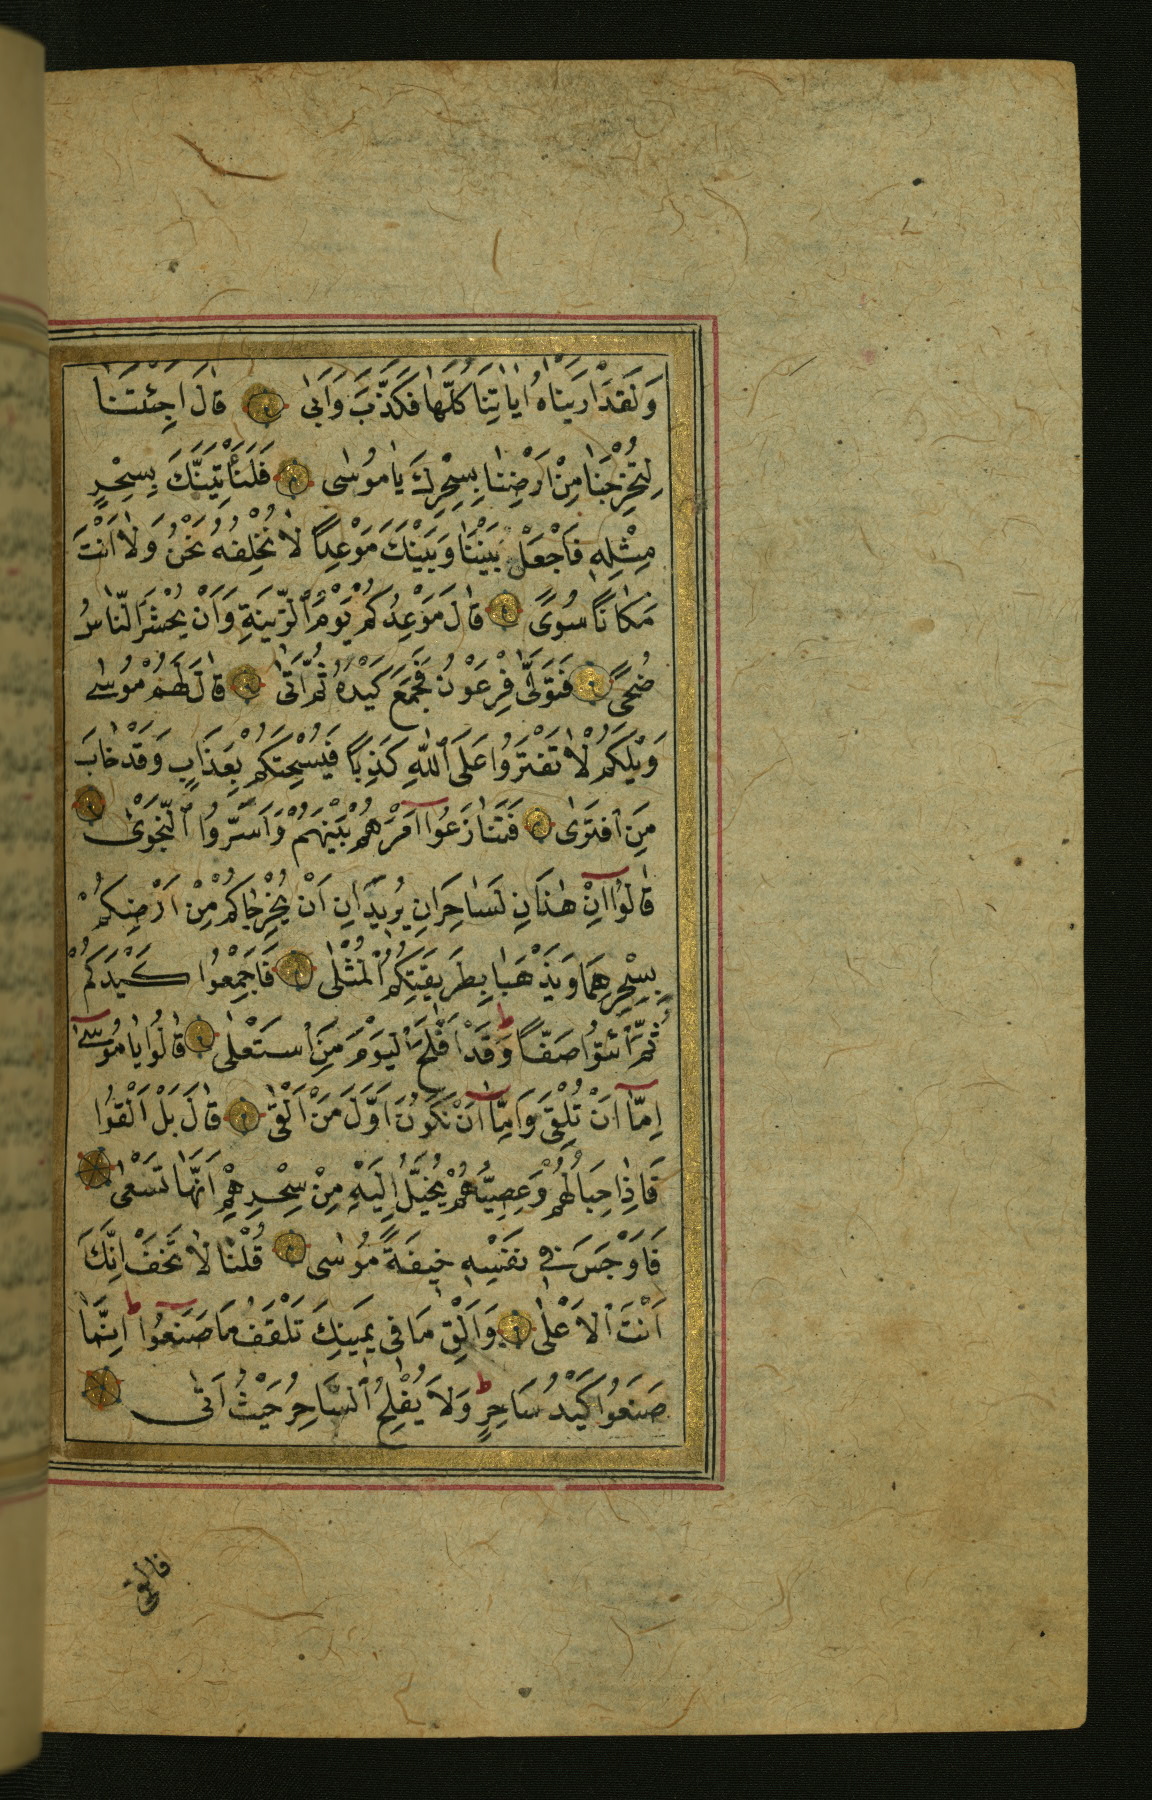 وَلَقَدْ اَرَيْنَاهُ اٰيَاتِنَا كُلَّهَا فَكَذَّبَ وَاَبٰى قَالَ اَجِئْتَنَا
لِتُخْرِجَنَا مِنْ اَرْضِنَا بِسِحْرِكَ يَا مُوسٰى فَلَنَأْتِيَنَّكَ بِسِحْرٍ
مِثْلِهِ فَاجْعَلْ بَيْنَنَا وَبَيْنَكَ مَوْعِدًا لَا نُخْلِفُهُ نَحْنُ وَلَا اَنْتَ
مَكَانًا سُوًى قَالَ مَوْعِدُكُمْ يَوْمُ الزِّينَةِ وَاَنْ يُحْشَرَ النَّاسُ
ضُحًى فَتَوَلّٰى فِرْعَوْنُ فَجَمَعَ كَيْدَهُ ثُمَّ اَتٰى قَالَ لَهُمْ مُوسٰى
وَيْلَكُمْ لَا تَفْتَرُوا عَلَى اللّٰهِ كَذِبًا فَيُسْحِتَكُمْ بِعَذَابٍ وَقَدْ خَابَ
مَنِ افْتَرٰى فَتَنَازَعُوا اَمْرَهُمْ بَيْنَهُمْ وَاَسَرُّوا النَّجْوٰى
قَالُوا اِنْ هٰذَانِ لَسَاحِرَانِ يُرِيدَانِ اَنْ يُخْرِجَاكُمْ مِنْ اَرْضِكُمْ
بِسِحْرِهِمَا وَيَذْهَبَا بِطَرِيقَتِكُمُ الْمُثْلٰى فَاَجْمِعُوا كَيْدَكُمْ
ثُمَّ ائْتُوا صَفًّا ط وَقَدْ اَفْلَحَ الْيَوْمَ مَنِ اسْتَعْلٰى قَالُوا يَا مُوسٰى
اِمَّا اَنْ تُلْقِىَ وَاِمَّا اَنْ نَكُونَ اَوَّلَ مَنْ اَلْقٰى قَالَ بَلْ اَلْقُوا
فَاِذَا حِبَالُهُمْ وَعِصِيُّهُمْ يُخَيَّلُ اِلَيْهِ مِنْ سِحْرِهِمْ اَنَّهَا تَسْعٰى
فَاَوْجَسَ فِى نَفْسِهِ خِيفَةً مُوسٰى قُلْنَا لَا تَخَفْ اِنَّكَ
اَنْتَ الْاَعْلٰى وَاَلْقِ مَا فِى يَمِينِكَ تَلْقَفْ مَا صَنَعُوا ط اِنَّمَا
صَنَعُوا كَيْدُ سَاحِرٍ ط وَلَا يُفْلِحُ السَّاحِرُ حَيْثُ اَتٰى
فالقى